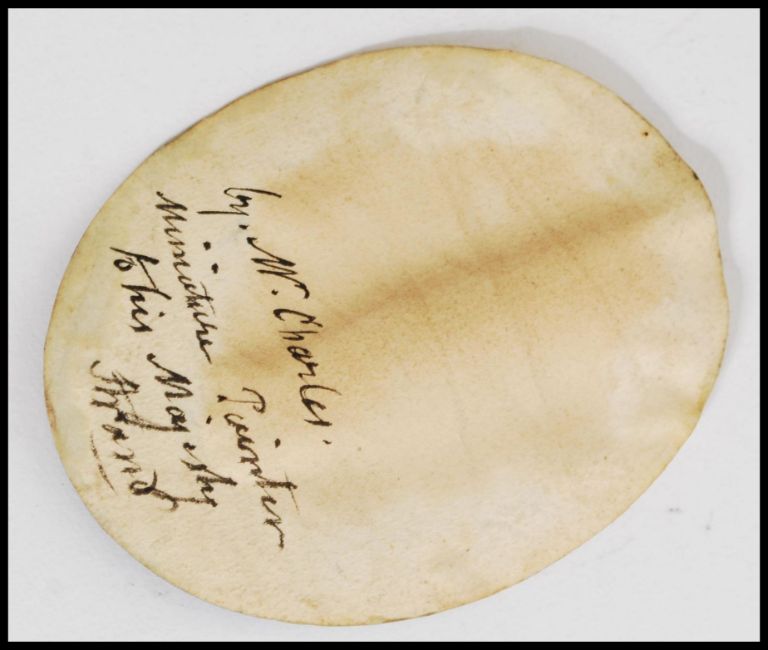 by. Mr. Charles.
Miniature Painter
to his Majesty
Strand